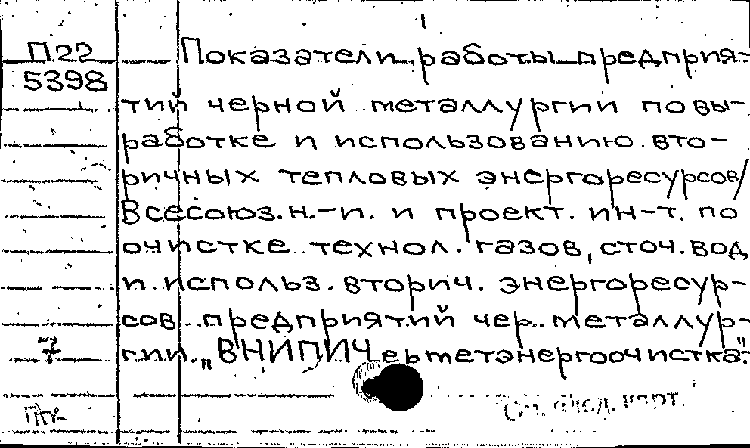 П22 Показатели работы предприя-
5398
тий черной металлургии по вы-
работке и использованию вто-
ричных тепловых энергоресурсов/
Всесоюз.н.-и. и проект. ин-т. по
очистке технол. газов, сточ.вод
и использ. вторич. энергоресур-
сов предприятий чер. металлур-
7 гии „ВНИПИЧерметэнергоочистка".